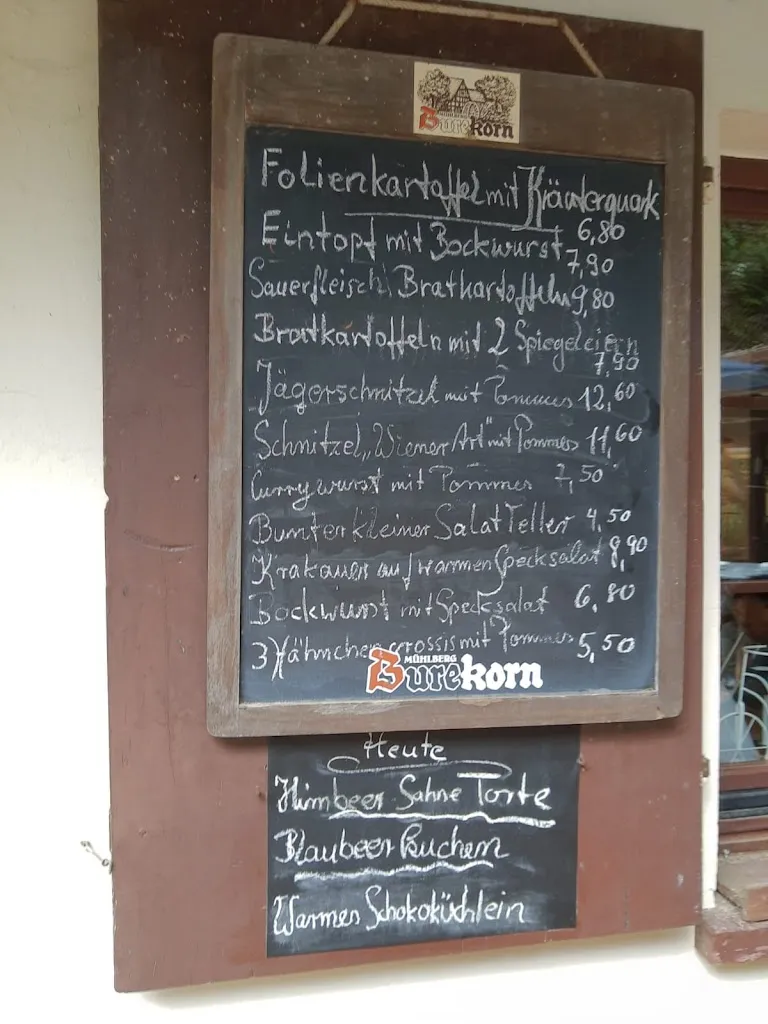 Burekorn
Folienkartoffel mit Kräuterquark
6,80
Eintopf mit Bockwurst
7,90
Sauerfleisch Bratkartoffeln 9,80
Bratkartoffeln mit 2 Spiegeleiern
7,90
Jägerschnitzel mit Pommes 12,60
Schnitzel „Wiener Art" mit Pommes 11,60
Currywurst mit Pommes 7,50
Bunter kleiner Salat Teller 4,50
Krakauer auf warmen Specksalat 8,90
Bockwurst mit Specksalat 6,80
3 Hähnchencrossis mit Pommes 5,50
MÜHLBERG
Burekorn
Heute
Himbeer Sahne Torte
Blaubeer Kuchen
Warmes Schokoküchlein